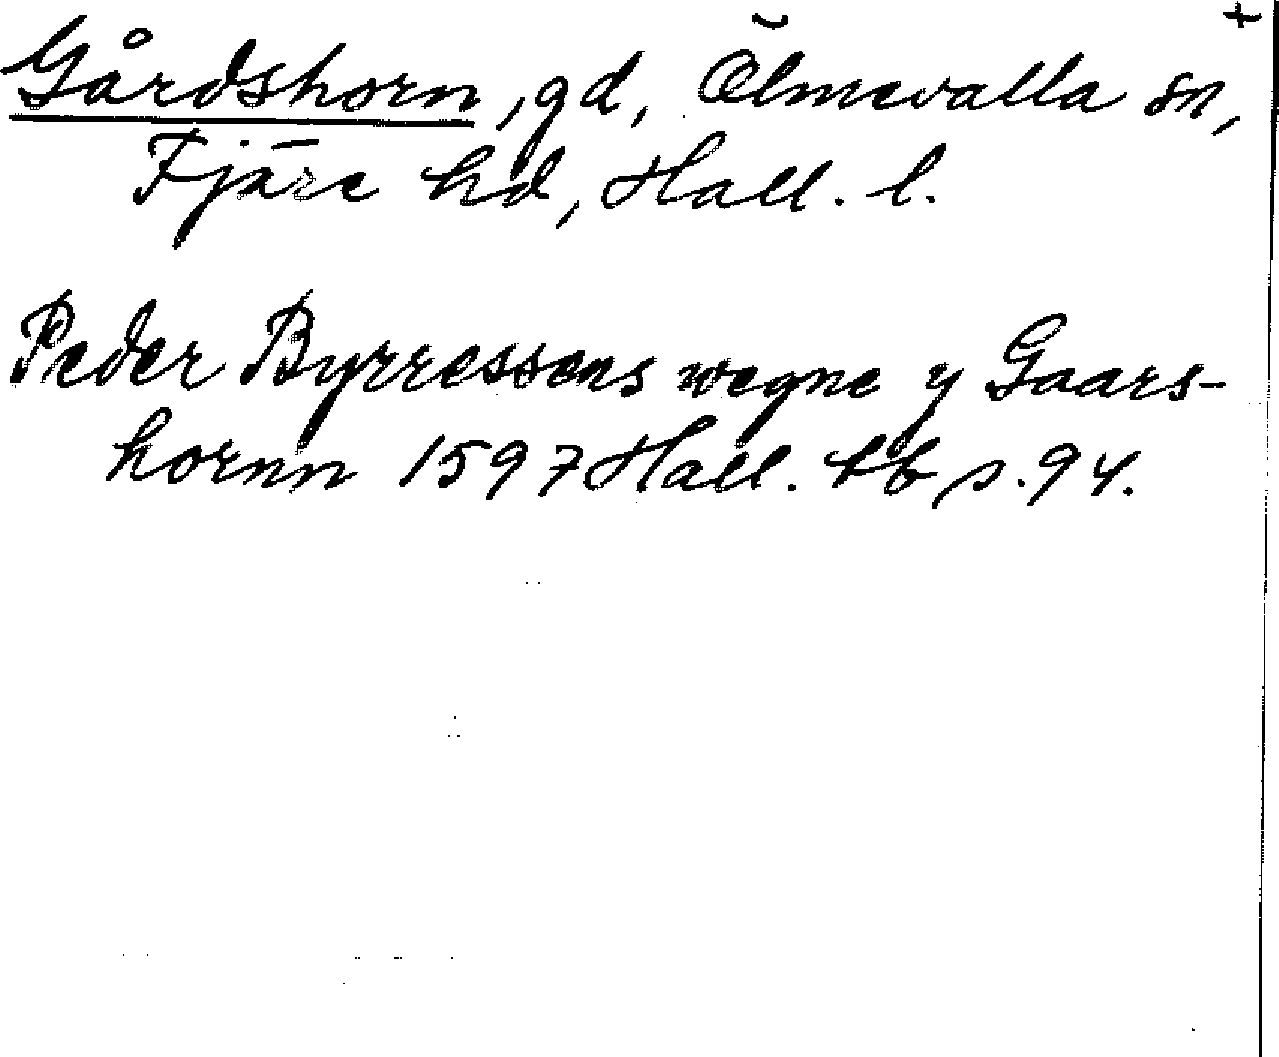 +
Gårdshorn, gd, Ölmevalla sn,
Fjäre hd, Hall. l.
Peder Byrressens wegne y Gaars-
hornn 1597 Hall. tb s. 94.